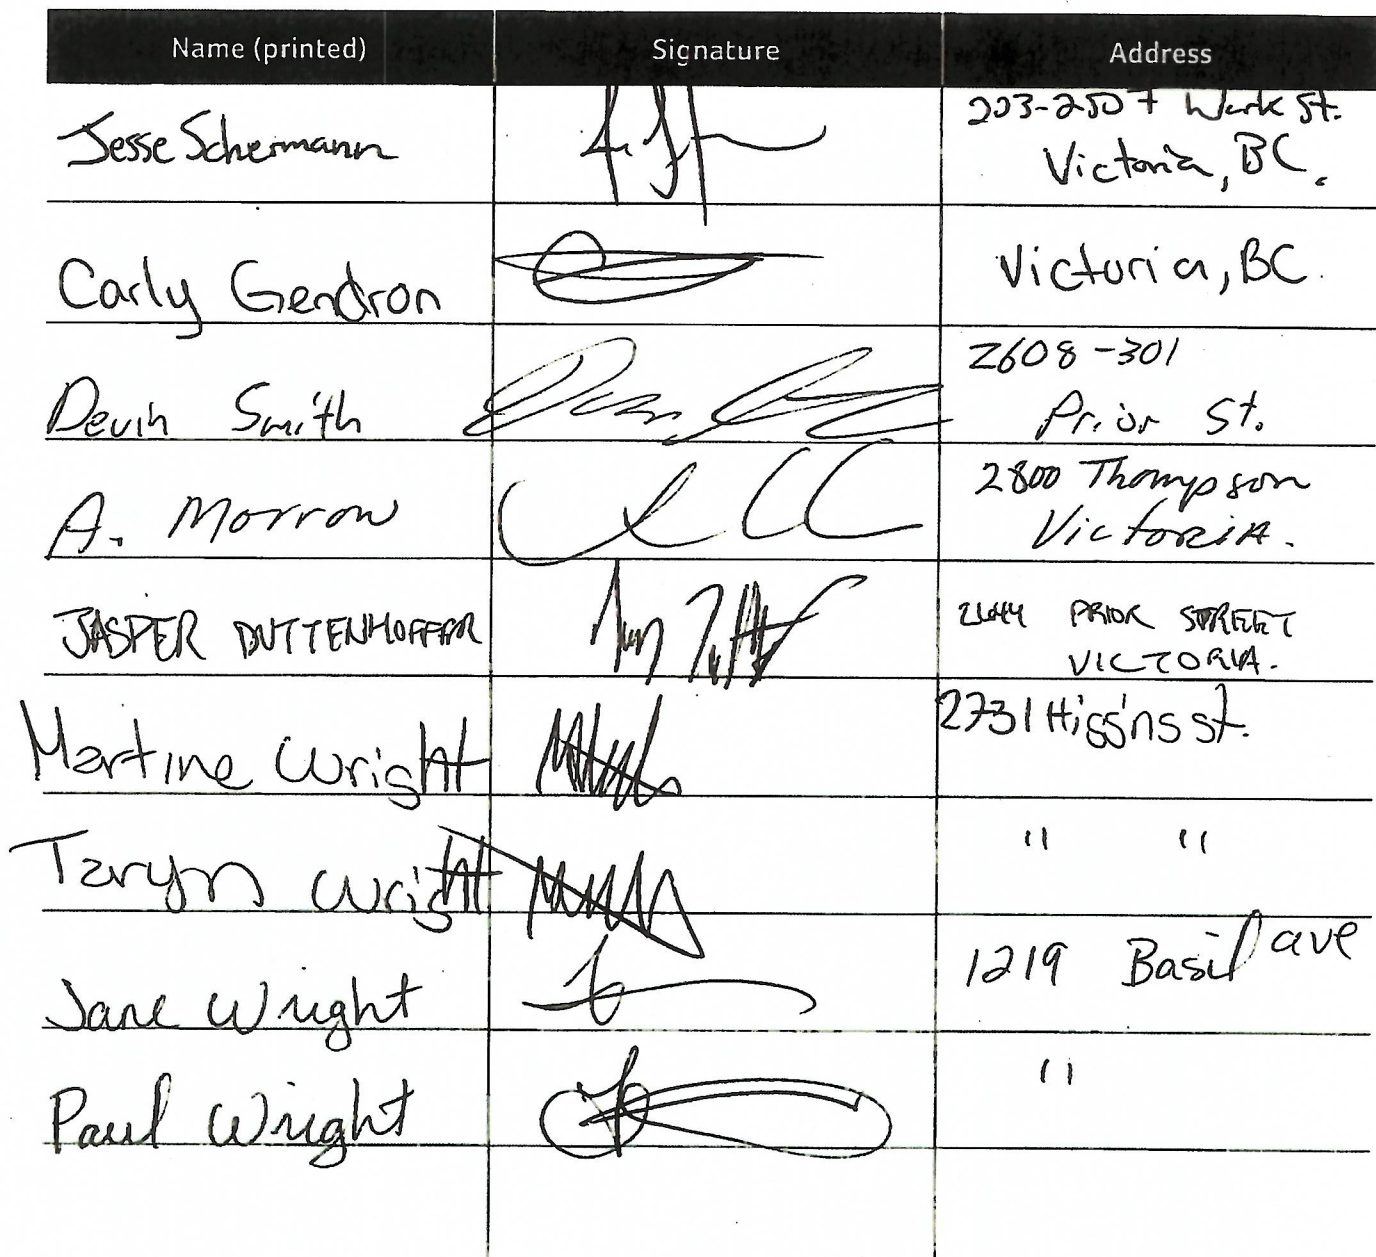 Name (printed) Signature Address
Jesse Schermann 203-2507 Work St.
Victoria, BC.
Carly Gendron Victoria, BC.
Devin Smith 2608-301
Prior St.
A. Morrow 2800 Thompson
VictoRiA.
JASPER DUTTENHOFFER 2644 PRIOR STREET
VICTORIA.
Martine Wright 2731 Higgins st.
Taryn Wright " "
Jane Wright 1219 Basil ave
Paul Wright "